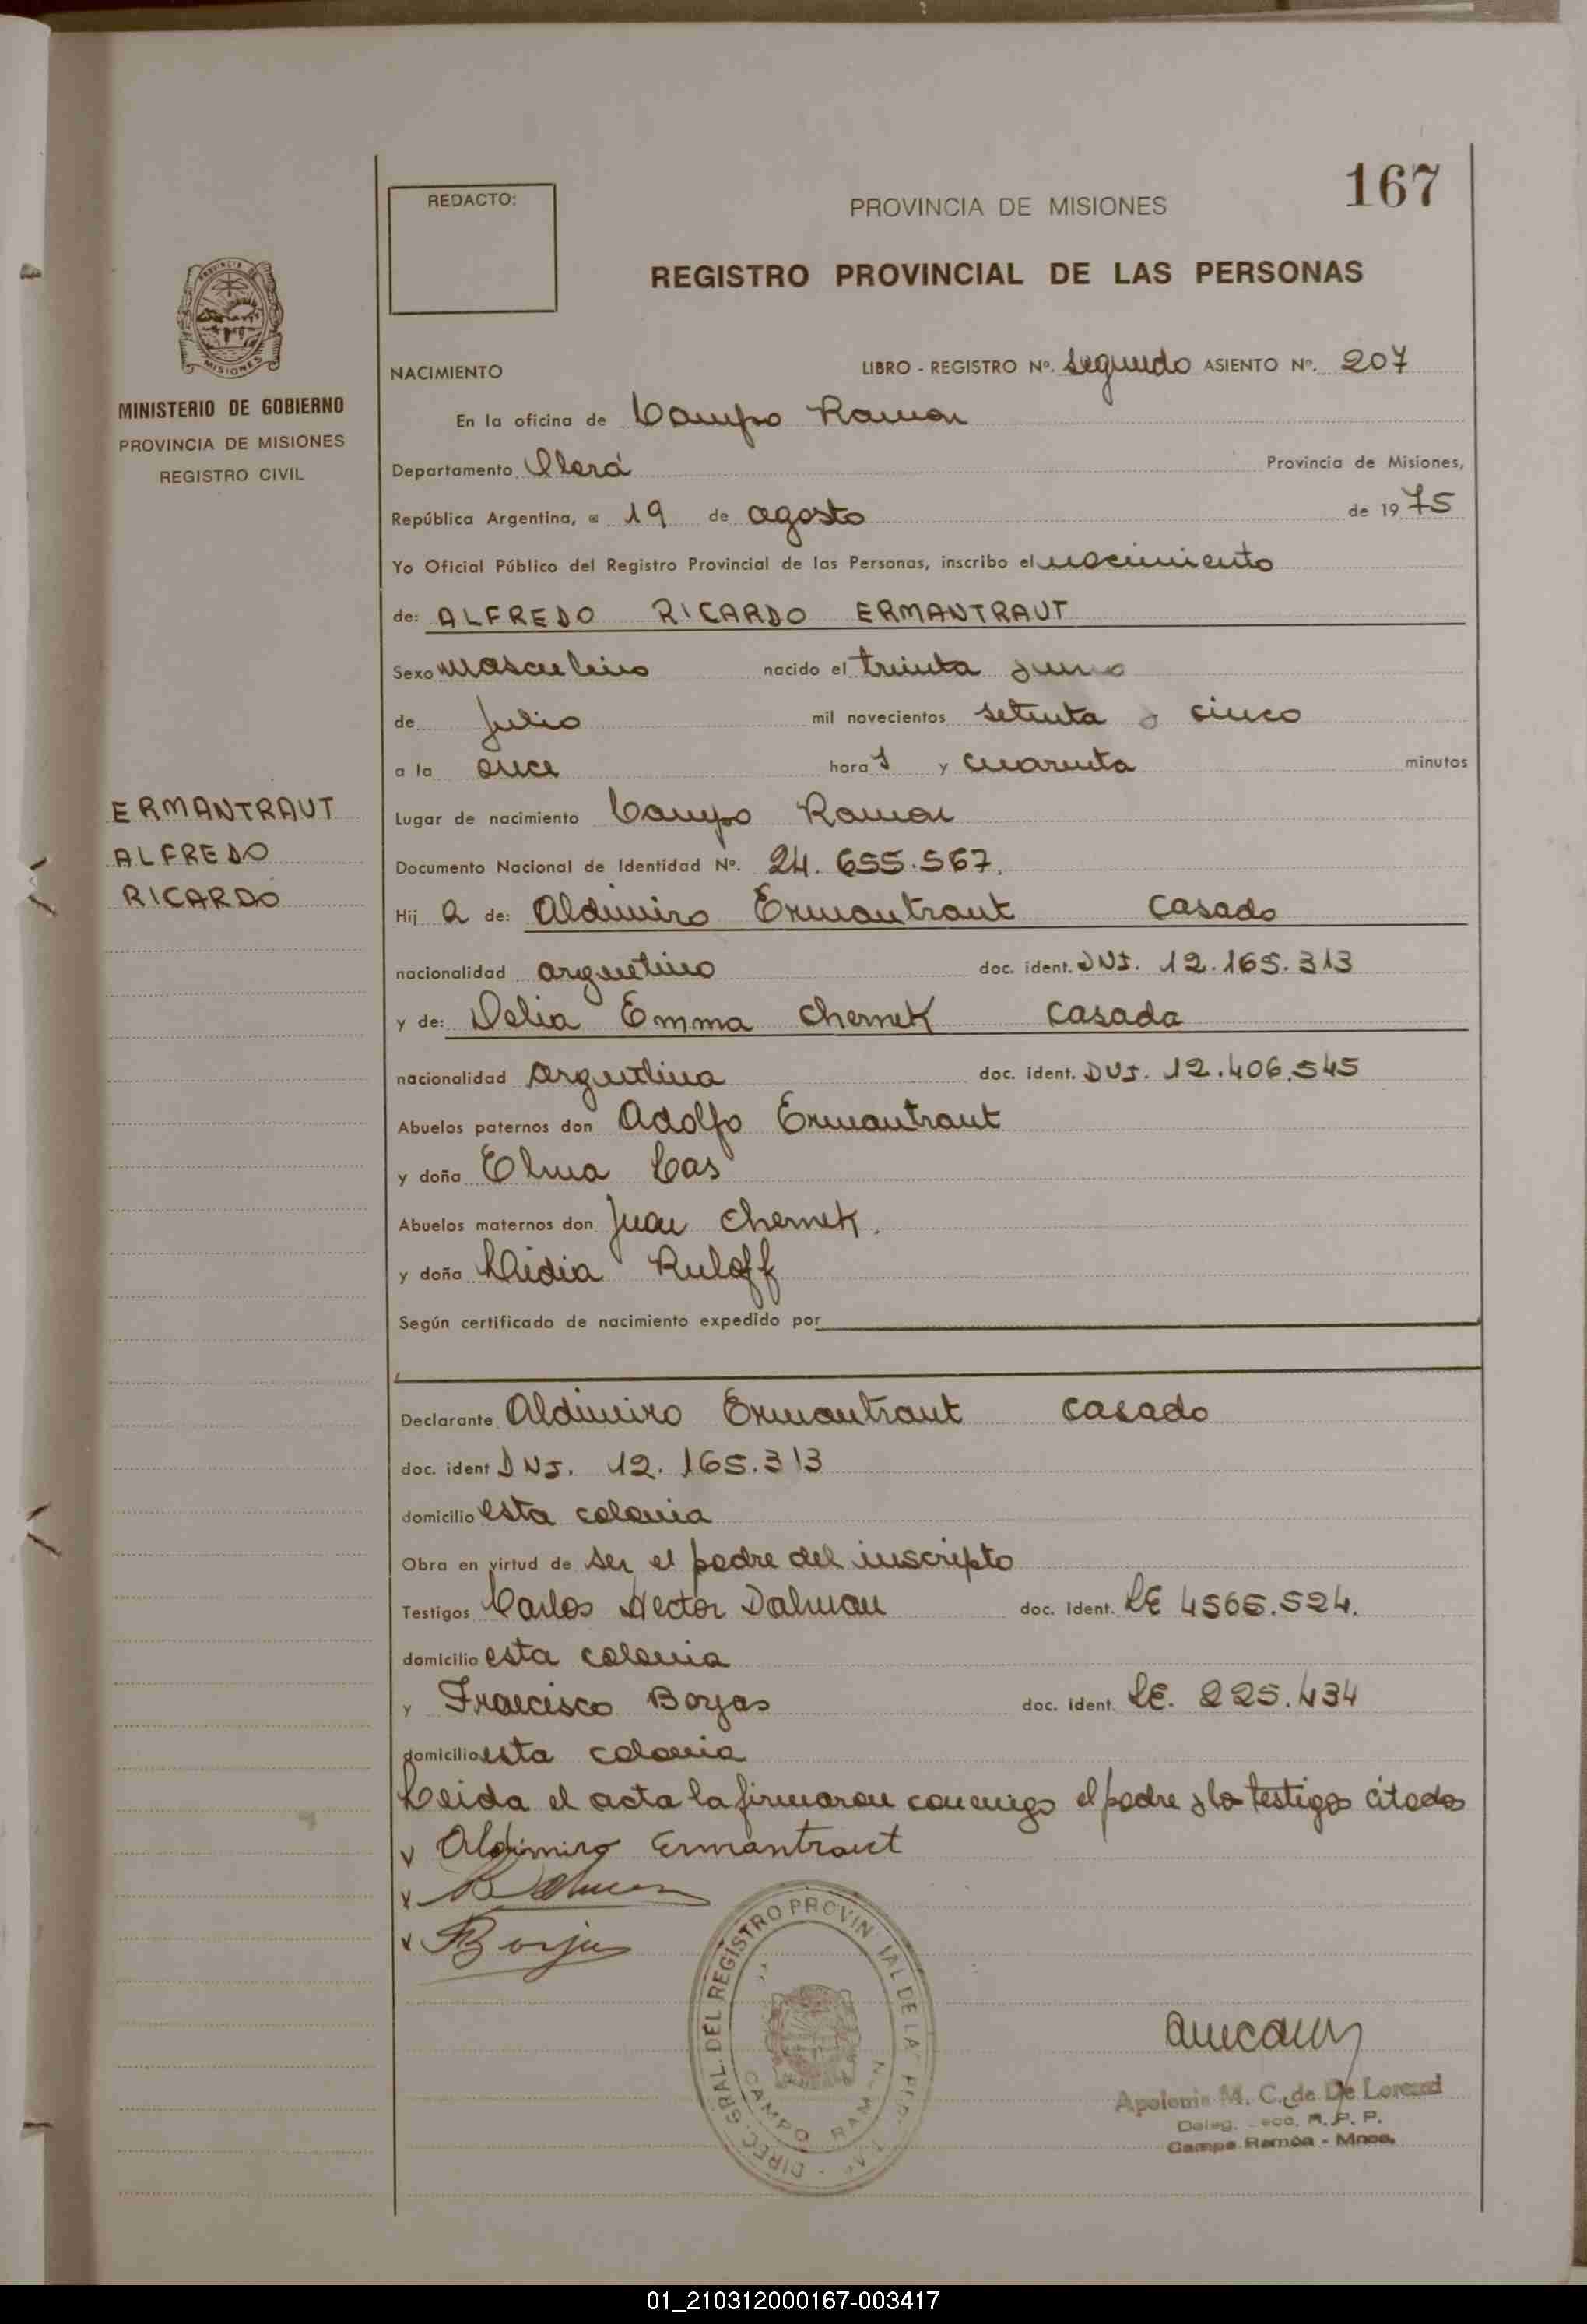 167
REDACTO:
PROVINCIA DE MISIONES
REGISTRO PROVINCIAL DE LAS PERSONAS
PROVINCIA DE
MISIONES
MINISTERIO DE GOBIERNO
PROVINCIA DE MISIONES
REGISTRO CIVIL
NACIMIENTO LIBRO - REGISTRO Nº. Segundo ASIENTO Nº. 207
En la oficina de Campo Ramon
Departamento Oberá Provincia de Misiones,
República Argentina, a 19 de agosto de 1975
Yo Oficial Público del Registro Provincial de las Personas, inscribo el nacimiento
de: ALFREDO RICARDO ERMANTRAUT
Sexo masculino nacido el treinta y uno
de Julio mil novecientos setenta y cinco
a la once horas y cuarenta minutos
ERMANTRAUT
ALFREDO
RICARDO
Lugar de nacimiento Campo Ramon
Documento Nacional de Identidad Nº. 24.655.567.
Hij o de: Aldimiro Ermantraut casado
nacionalidad argentino doc. ident. DNI. 12.165.313
y de: Delia Emma Chernek casada
nacionalidad argentina doc. ident. DNI. 12.406.545
Abuelos paternos don Adolfo Ermantraut
y doña Elma Cas
Abuelos maternos don Juan Chernek.
y doña Lidia Ruloff
Según certificado de nacimiento expedido por
Declarante Aldimiro Ermantraut casado
doc. ident DNI. 12.165.313
domicilio esta colonia
Obra en virtud de ser el padre del inscripto
Testigos Carlos Hector Dalman doc. Ident. LE 4565.524.
domicilio esta colonia
y Francisco Borjas doc. ident. LE. 225.434
domicilio esta colonia
Leida el acta la firmaron conmigo el padre y lo testigos citados
Aldimiro Ermantraut
Borjas
DIREC. GRAL. DEL REGISTRO PROVINCIAL DE LAS
CAMPO RAMON
Apolonia M. C. de De Lorenzi
Deleg. R. P. P.
Campo Ramón - Mnes.
01_210312000167-003417